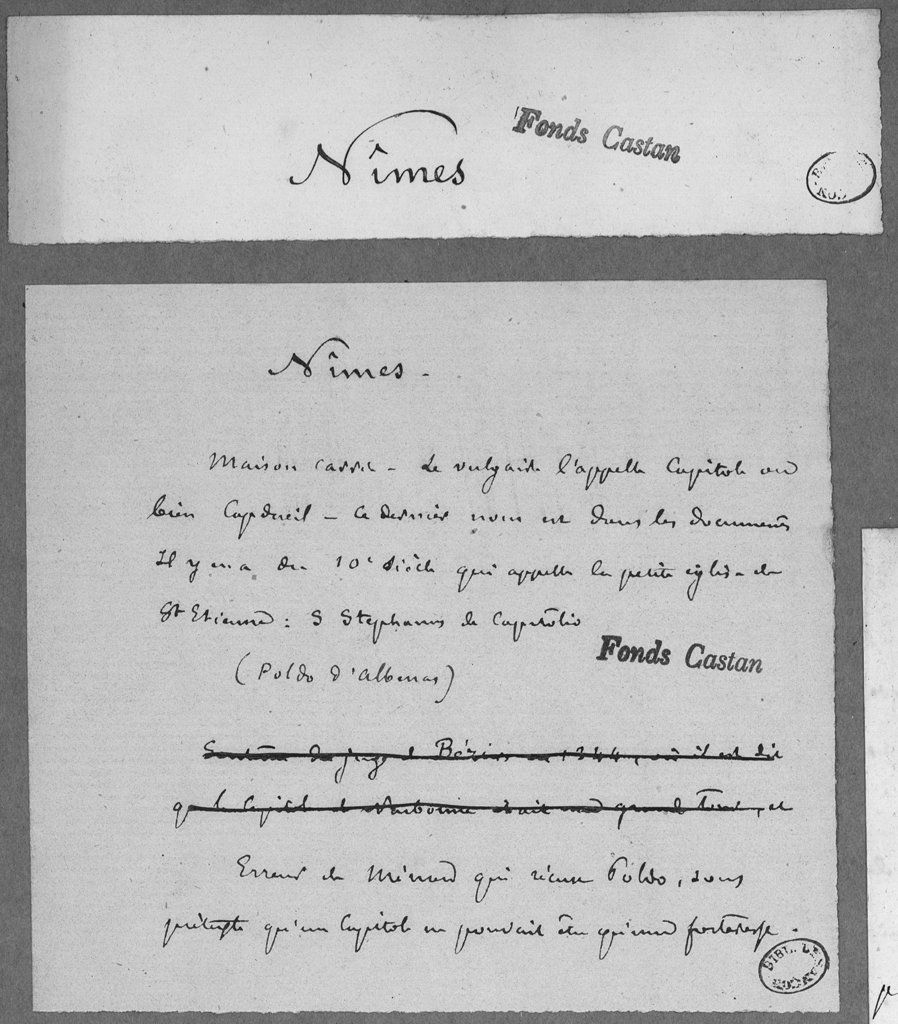 Nîmes
Fonds Castan
Nîmes -
Maison carrée - Le vulgaire l'appelle Capitole ou
bien Capdueil - Ce dernier nom est dans les documents
Il y en a du 10e siècle qui appelle la petite église de
St Etienne : S Stephanus de Capitolio
Fonds Castan
(Poldo d'Albenas)
Sentence du juge de Béziers en 1344, où il est dit
que le Capitole de Narbonne était une grande tour, et
Erreur de Ménard qui récuse Poldo, sous
prétexte qu'un Capitole ne pouvait être qu'une forteresse.